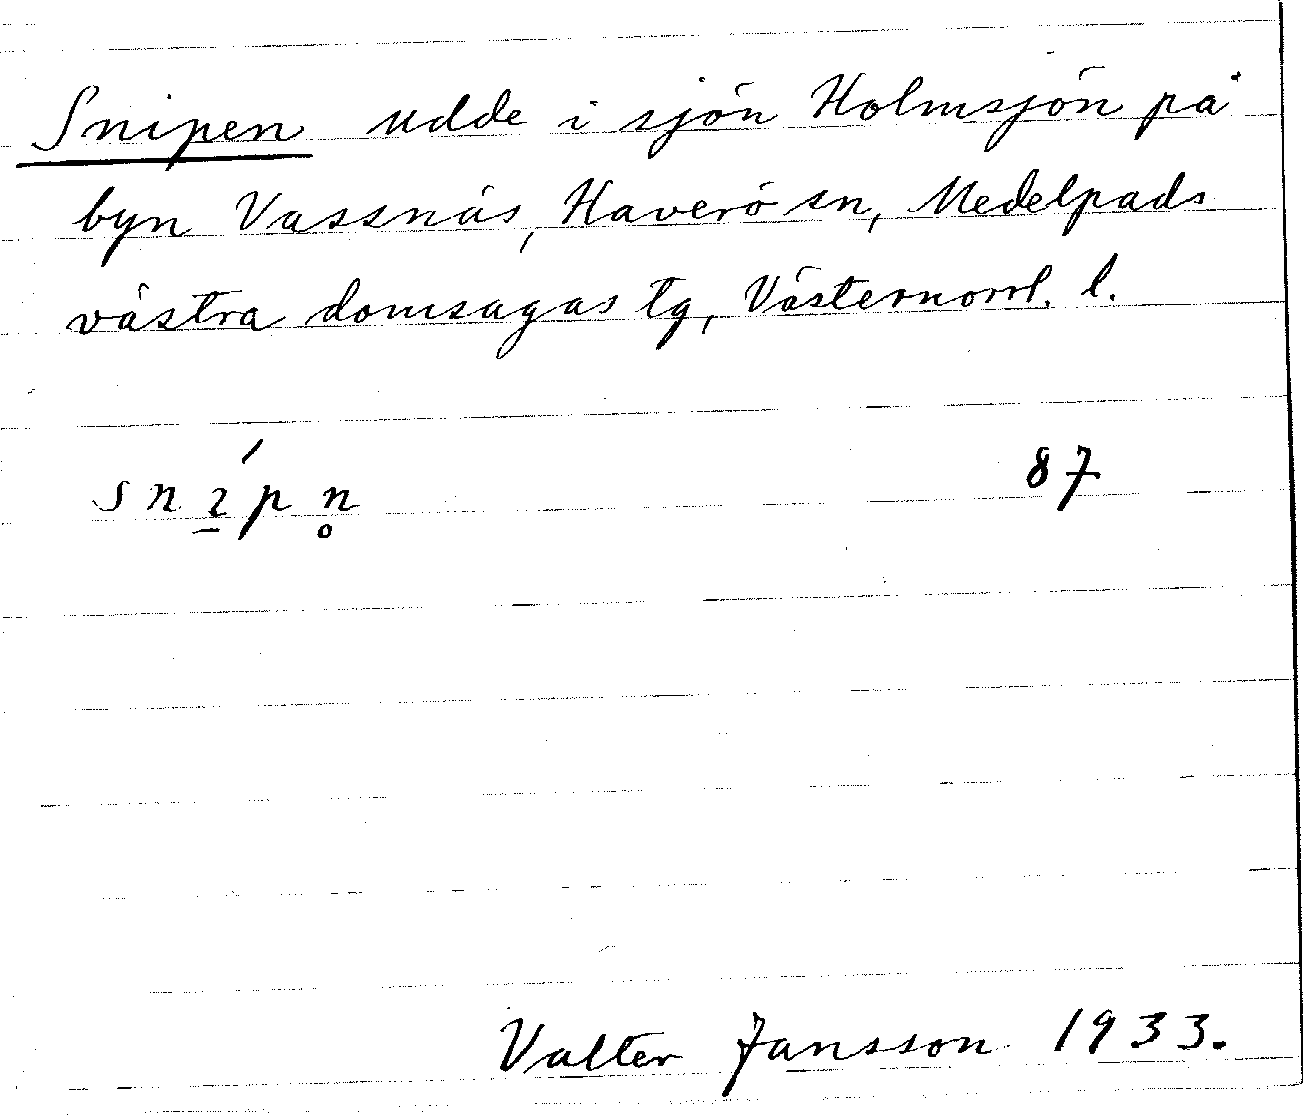 Snipen udde i sjön Holmsjön på
byn Vassnäs, Haverö sn, Medelpads
västra domsagas tg, Västernorrl. l.
snɪ̱́pn̥ 87
Valter Jansson 1933.